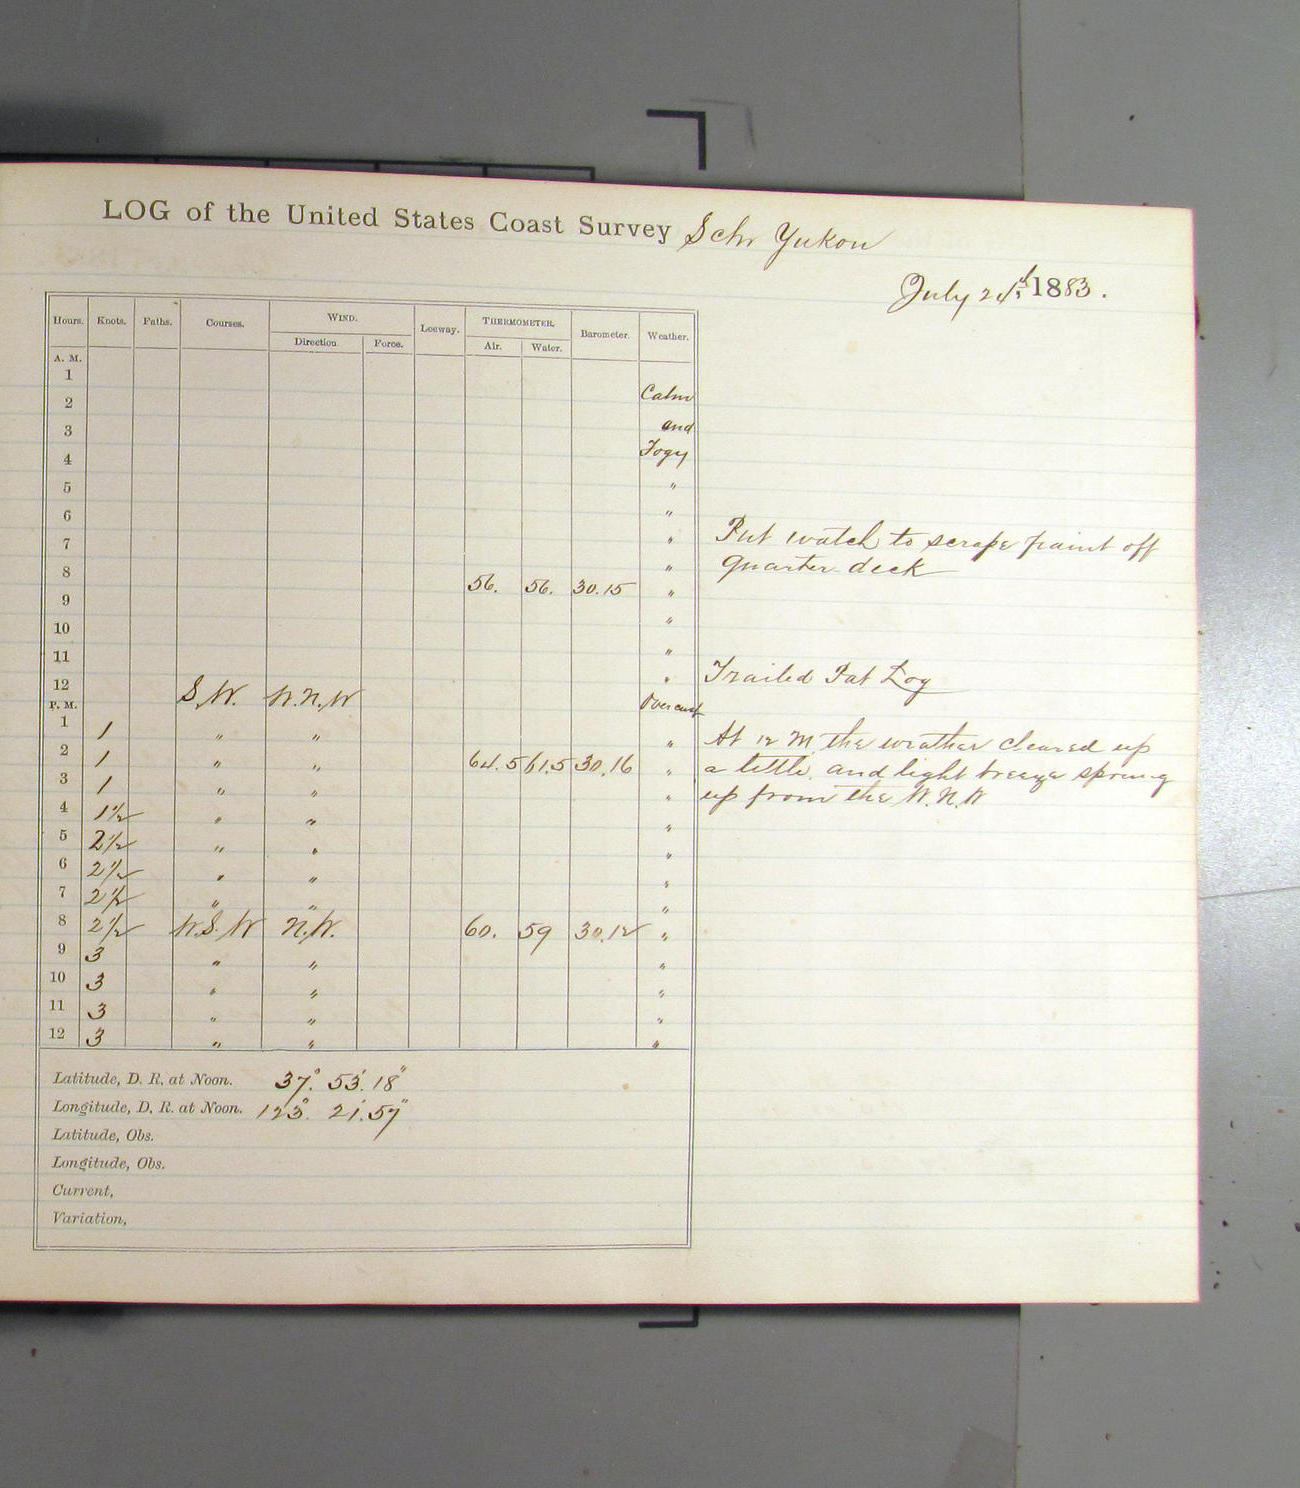 LOG of the United States Coast Survey Schr Yukon
July 24th 1883.
Hours. Knots. Faths. Courses. WIND. Leeway. THERMOMETER. Barometer. Weather.
Direction. Force. Air. Water.
A. M.
1
2 Calm
3 and
4 Fogy
5 "
6 "
7 " Put watch to scrape paint off
8 " quarter deck
9 56. 56. 30.15 "
10 "
11 "
12 " Trailed Pat Log
P. M. S.W. W.N.W Overcast
1 1 " " " At 12 M. the weather cleared up
2 1 " " 64.5 61.5 30.16 " a little and light breeze sprung
3 1 " " " up from the W.N.W
4 1½ " " "
5 2½ " " "
6 2½ " " "
7 2½ " " "
8 2½ W.S.W N.W. 60. 59 30.12 "
9 3 " " "
10 3 " " "
11 3 " " "
12 3 " " "
Latitude, D. R. at Noon. 37° 53' 18"
Longitude, D. R. at Noon. 123° 21' 57"
Latitude, Obs.
Longitude, Obs.
Current,
Variation,